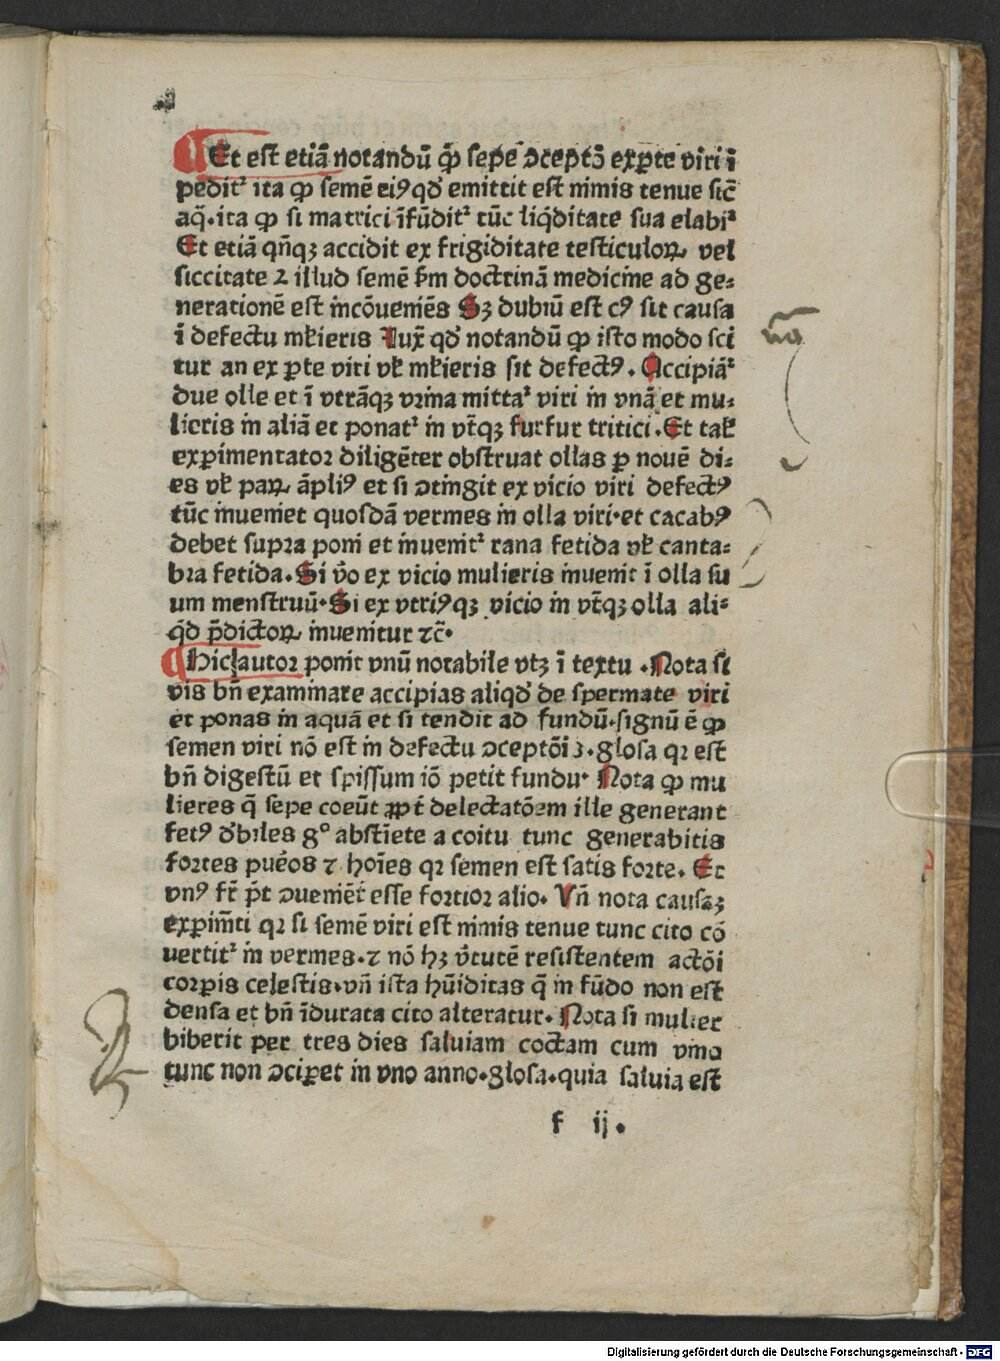 ¶Et est etiã notandũ ꝙ̃ sepe ɔceptõ exꝑte viri ĩ
peditᷣ ita ꝙ semẽ eiꝰ qđ emittit est nimis tenue sic̃
aq̃.ita ꝙ si matrici ĩfũditᷣ tũc liq̃ditate sua elabiᷣ
Et etiã qñqꝫ accidit ex frigiditate testiculoꝝ vel
siccitate ⁊ illud semẽ ẜm doctrinã medicine ad ge⸗
nerationẽ est incõueniẽs Sꝫ dubiũ est cꝰ sit causa
ĩ defectu mƚieris Iux̃ qđ notandũ ꝙ isto modo sci
tur an ex ꝑte viri vƚ mƚieris sit defectꝰ. Accipiãᷣ
due olle et ĩ vtrãqꝫ vrina mittaᷣ viri in vnã et mu⸗
lieris in aliã et ponatᷣ in vt̃qꝫ furfur tritici.Et taƚ
exꝑimentator diligẽter obstruat ollas ꝑ nouẽ di⸗
es vƚ paꝝ ãpliꝰ et si ɔtingit ex vicio viri defectꝰ
tũc inueniet quosdã vermes in olla viri.et cacabꝰ
debet supra poni et inuenitᷣ rana fetida vƚ canta⸗
bra fetida.Si ṽo ex vicio mulieris inuenit ĩ olla su
um menstruũ.Si ex vtriꝰqꝫ vicio in vt̃qꝫ olla ali⸗
q̃d p̃dictoꝝ inuenitur ⁊c̃.
¶Hic autor ponit vnũ notabile vtꝫ ĩ textu .Nota si
vis bñ examinare accipias aliqđ de spermate viri
et ponas in aquã et si tendit ad fundũ.signũ ẽ ꝙ
semen viri nõ est in defectu ɔceptõi ʒ.glosa qꝛ est
bñ digestũ et spissum iõ petit fundu. Nota ꝙ mu
lieres q̃ sepe coeũt ꝓpt̃ delectatõem ille generant
fetꝰ đbiles gº abstĩete a coitu tunc generabitis
fortes puẽos ⁊ hoĩes qꝛ semen est satis forte. Et
vnꝰ fr̃ p̃t ɔueniẽt̃ esse fortior alio. Vñ nota causaꝫ
exꝑim̃ti qꝛ si semẽ viri est nimis tenue tunc cito cõ
vertitᷣ in vermes.⁊ nõ hꝫ ṽtutẽ resistentem actõi
corꝑis celestis.vñ ista hũiditas q̃ in fũdo non est
densa et bñ ĩdurata cito alteratur. Nota si mulier
biberit per tres dies saluiam coctam cum vino
tunc non ɔciꝑet in vno anno.glosa.quia saluia est
f ij.
Digitalisierung gefördert durch die Deutsche Forschungsgemeinschaft - DFG